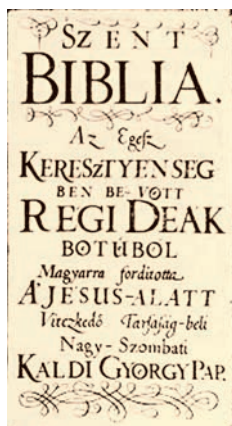 SZENT
BIBLIA.
Az Egesz
KERESZTYENSEG
BEN BE-VÖTT
REGI DEAK
BOTÜBÖL
Magyarra forditotta
A' JESUS-ALATT
Vitezkedő Tarsasag-beli
Nagy-Szombati
KALDI GYÖRGY PAP.